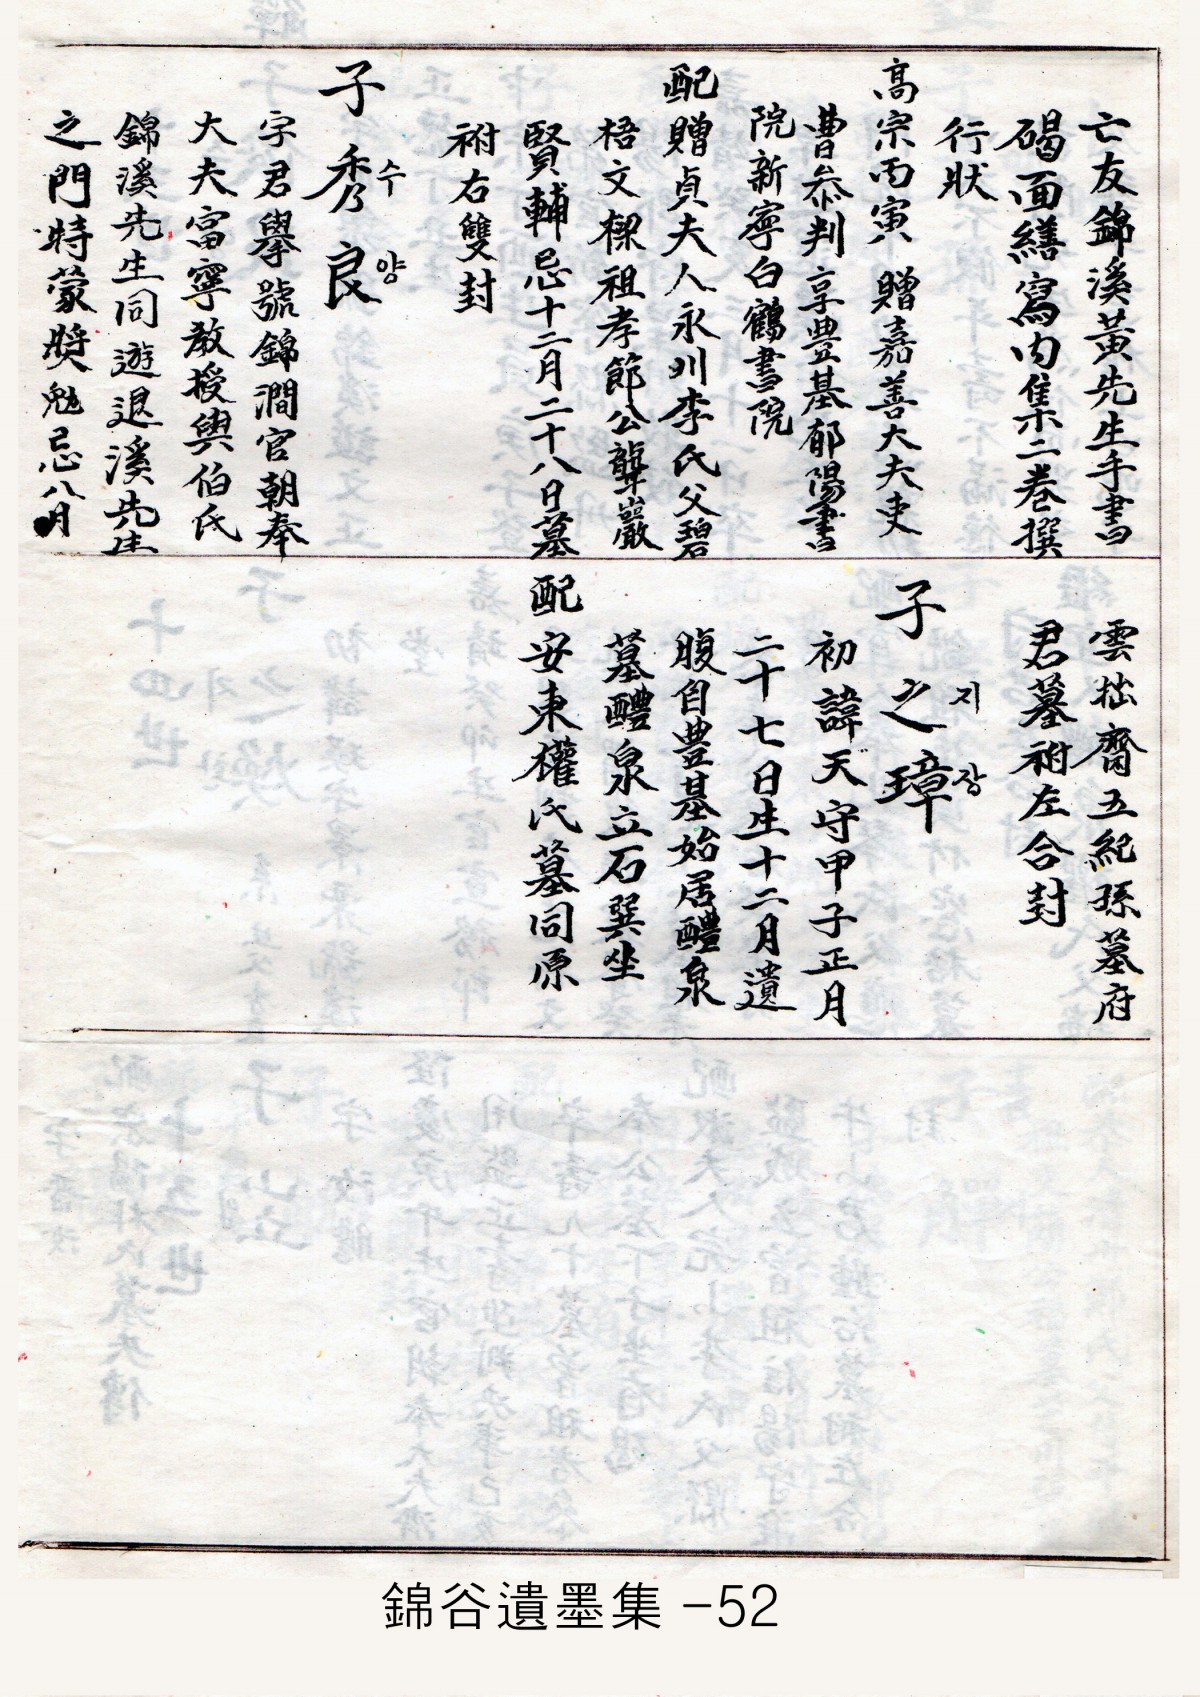 亡友錦溪黃先生手書
碣面繕寫內集二卷撰
行狀
高宗丙寅 贈嘉善大夫吏
曹叅判享豊基郁陽書
院新寧白鶴書院
配贈貞夫人永川李氏父碧
梧文樑祖孝節公聾巖
賢輔忌十二月二十八日墓
祔右雙封
子秀수良양
字君擧號錦澗官朝奉
大夫富寧教授與伯氏
錦溪先生同遊退溪先生
之門特蒙獎勉忌八月
雲拙齋五紀孫墓府
君墓祔左合封
子之지璋장
初諱天守甲子正月
二十七日生十二月遺
腹自豊基始居醴泉
墓醴泉立石巽坐
配安東權氏墓同原
錦谷遺墨集 -52